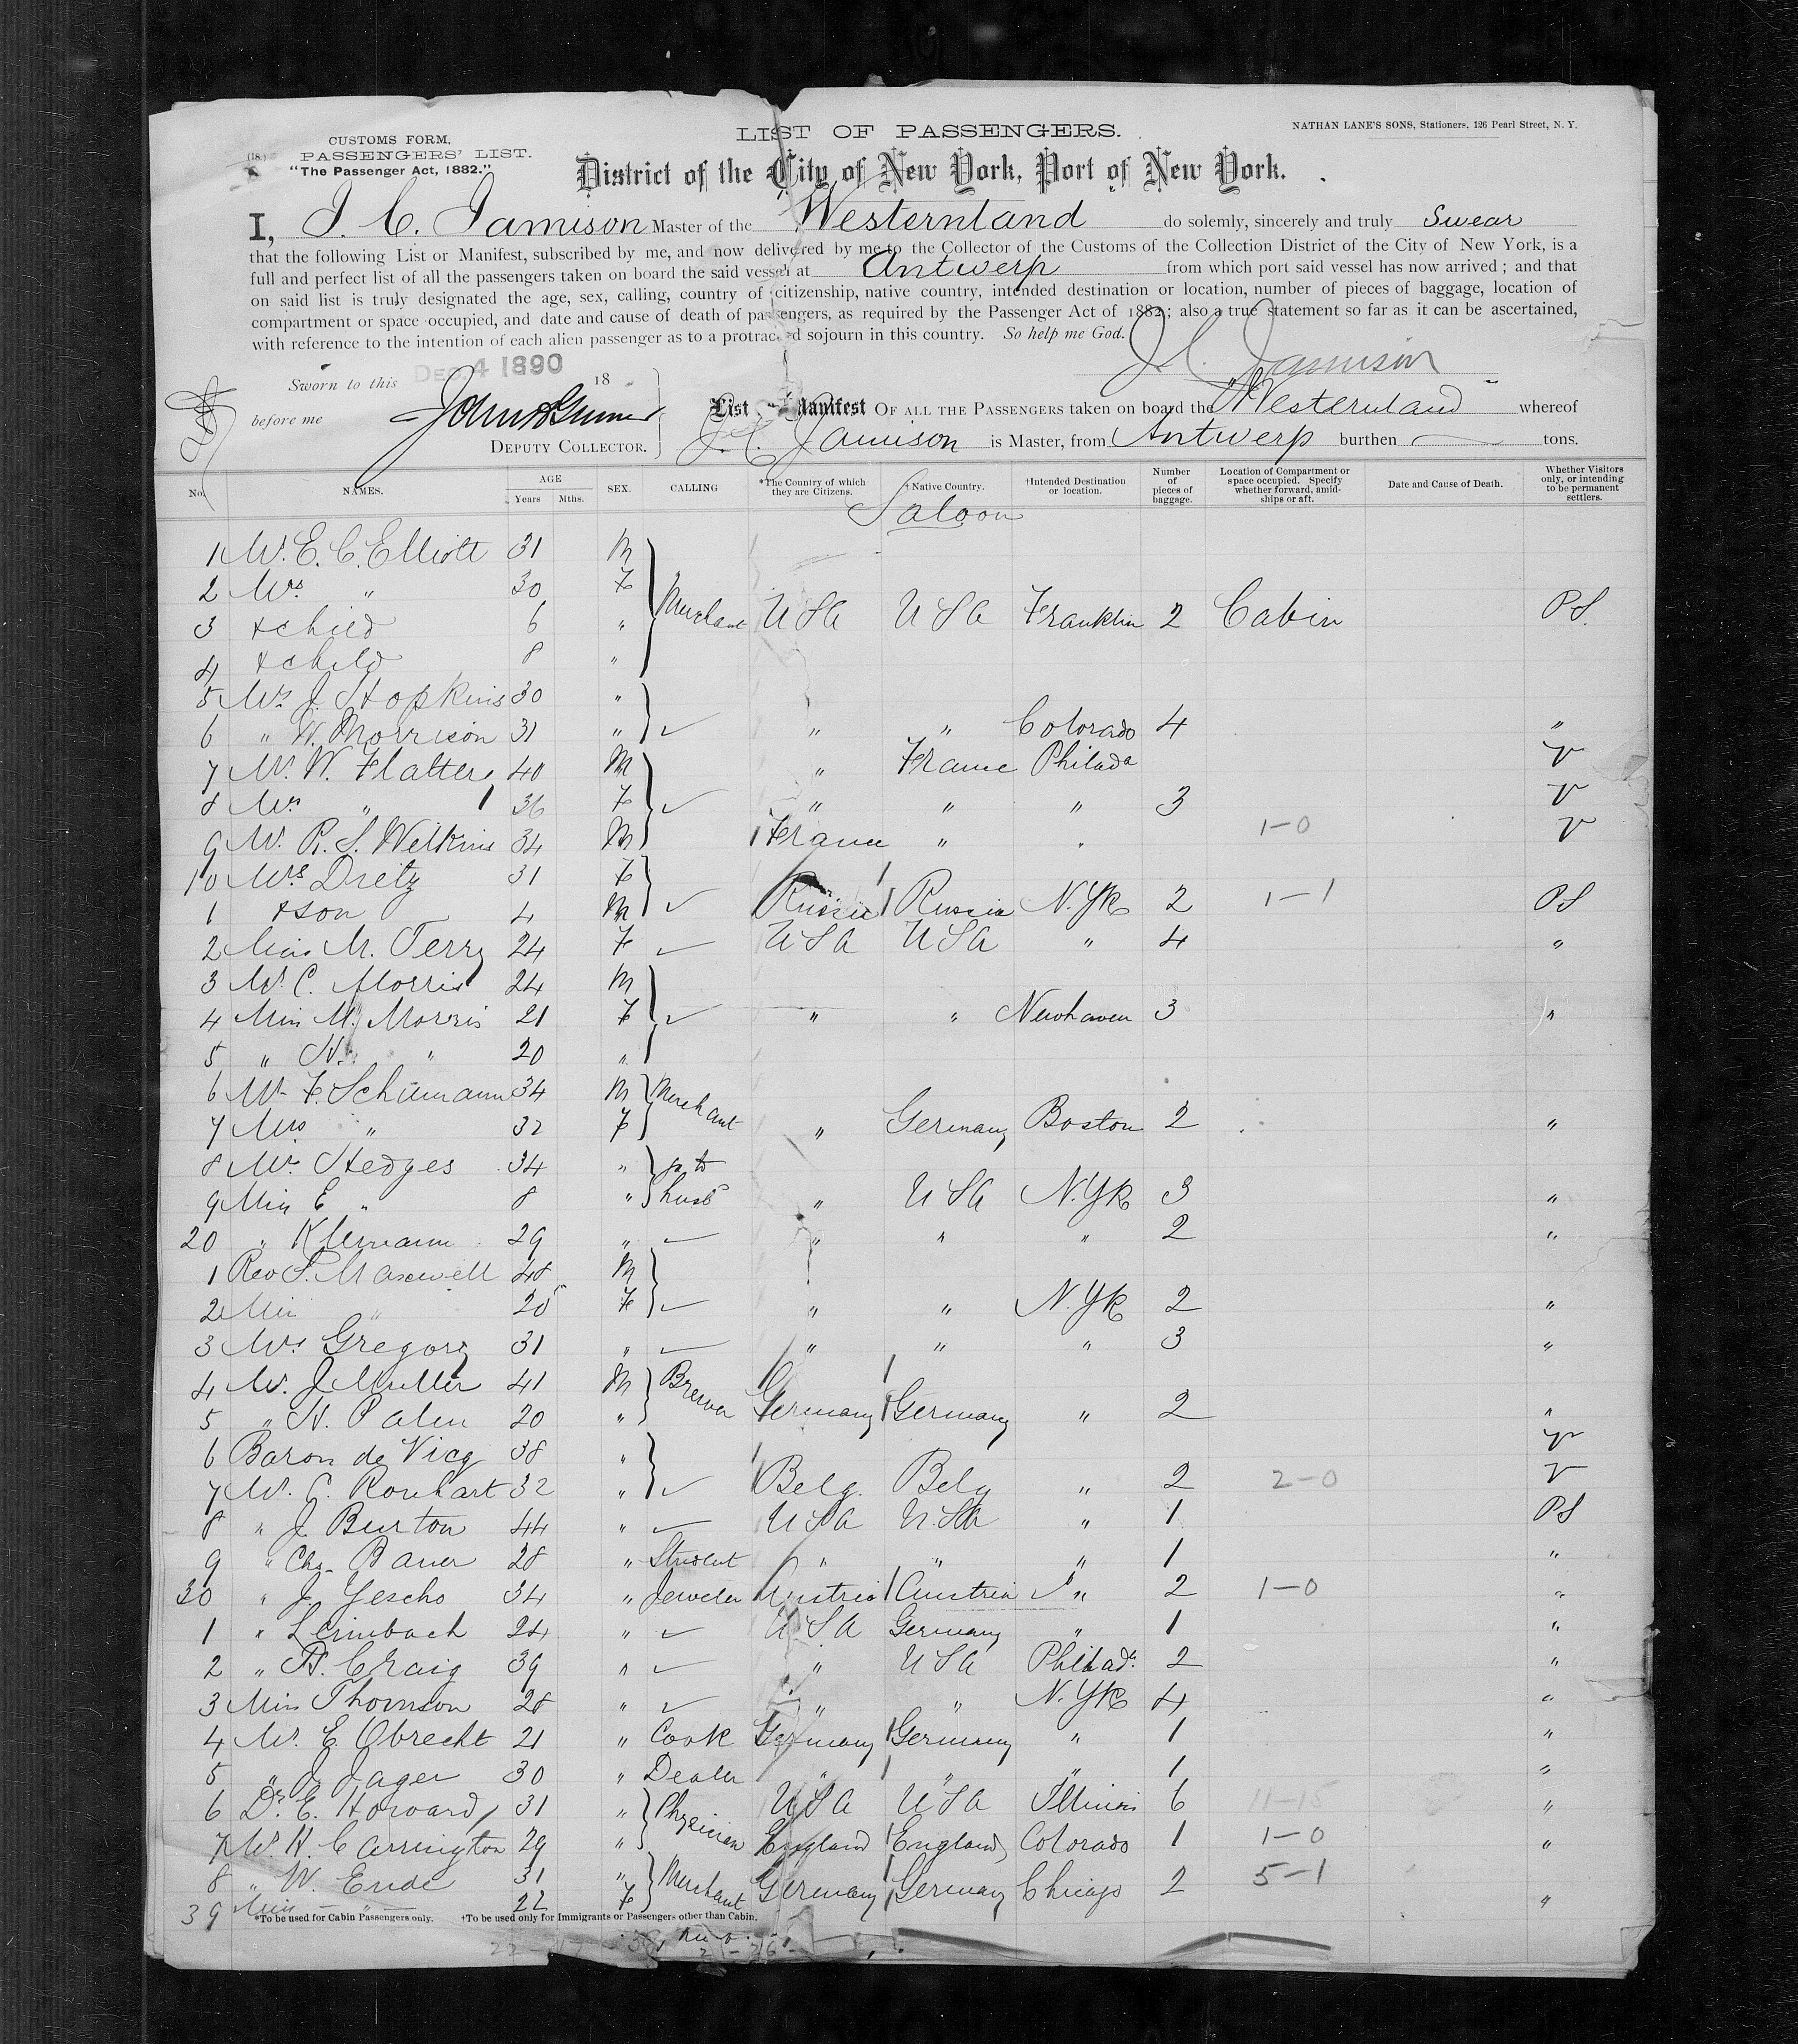 LIST OF PASSENGERS.
NATHAN LANE'S SONS, Stationers, 126 Pearl Street, N. Y.
(18.) CUSTOMS FORM.
PASSENGERS' LIST.
"The Passenger Act, 1882."
District of the City of New York, Port of New York.
I, J. C. Jamison Master of the Westernland do solemnly, sincerely and truly Swear
that the following List or Manifest, subscribed by me, and now delivered by me to the Collector of the Customs of the Collection District of the City of New York, is a
full and perfect list of all the passengers taken on board the said vessel at Antwerp from which port said vessel has now arrived; and that
on said list is truly designated the age, sex, calling, country of citizenship, native country, intended destination or location, number of pieces of baggage, location of
compartment or space occupied, and date and cause of death of passengers, as required by the Passenger Act of 1882; also a true statement so far as it can be ascertained,
with reference to the intention of each alien passenger as to a protracted sojourn in this country. So help me God.
J C. Jamison
Sworn to this DEC. 4 1890 18
before me
DEPUTY COLLECTOR.
List Manifest OF ALL THE PASSENGERS taken on board the "Westernland whereof
J. C. Jamison is Master, from Antwerp burthen — tons.
No. NAMES. AGE Years Mths. SEX. CALLING *The Country of which they are Citizens. †Native Country. †Intended Destination or location. Number of pieces of baggage. Location of Compartment or space occupied. Specify whether forward, amidships or aft. Date and Cause of Death. Whether Visitors only, or intending to be permanent settlers.
Saloon
1 Mr. E. C. Elliott 31 M
2 Mrs " 30 F
3 +child 6 " Merchant USA USA Franklin 2 Cabin PS.
4 +child 8 "
5 Mrs J. Hopkins 30 "
6 " W. Morrison 31 " ✓ " " Colorado 4 "
7 Mr. W. Flattery 40 M " France Philada V
8 Mrs " 36 F ✓ " " " 3 V
9 Mr. R. S. Wilkins 34 M France " " 1-0 V
10 Mrs Dietz 31 F
1 +son 4 M ✓ Russia Russia N.Yk 2 1-1 PS
2 Miss M. Terry 24 F ✓ USA USA " 4 "
3 Mr C. Morris 24 M
4 Miss M. Morris 21 F ✓ " " Newhaven 3 "
5 " N. " 20 "
6 Mr F. Schumann 34 M Merchant
7 Mrs " 32 F " Germany Boston 2 "
8 Mrs Hedges 34 " go to
9 Miss E " 8 " husbd " USA N.Yk 3 "
20 " Klemann 29 " ✓ " " " 2 "
1 Rev S. Maxwell 48 M
2 Miss " 25 F ✓ " " N.Yk 2 "
3 Mrs Gregory 31 " ✓ " " " 3 "
4 Mr. J Muller 41 M Brewer
5 " N. Palm 20 " Germany Germany " 2 "
6 Baron de Vicq 38 " V
7 Mr. C. Rouhart 32 " ✓ Belg. Belg " 2 2-0 V
8 " J. Burton 44 " ✓ USA USA " 1 PS
9 " Chs. Bauer 28 " Student " " " 1 "
30 " J. Yescho 34 " Jeweler Austria Austria " 2 1-0 "
1 " Leimbach 24 " ✓ USA Germany " 1 "
2 " H. Craig 39 " ✓ " USA Philada. 2 "
3 Miss Thomson 28 " ✓ " " N.Yk 4 "
4 Mr. E. Obrecht 21 " Cook Germany Germany " 1 "
5 " J. Jager 30 " Dealer " " " 1 "
6 Dr. E. Howard 31 " Physician USA USA Illinois 6 11-15 "
7 Mr. H. Carrington 29 " England England Colorado 1 1-0 "
8 " W. Ende 31 " Merchant Germany Germany Chicago 2 5-1
39 Miss " 22 F "
*To be used for Cabin Passengers only. †To be used only for Immigrants or Passengers other than Cabin.